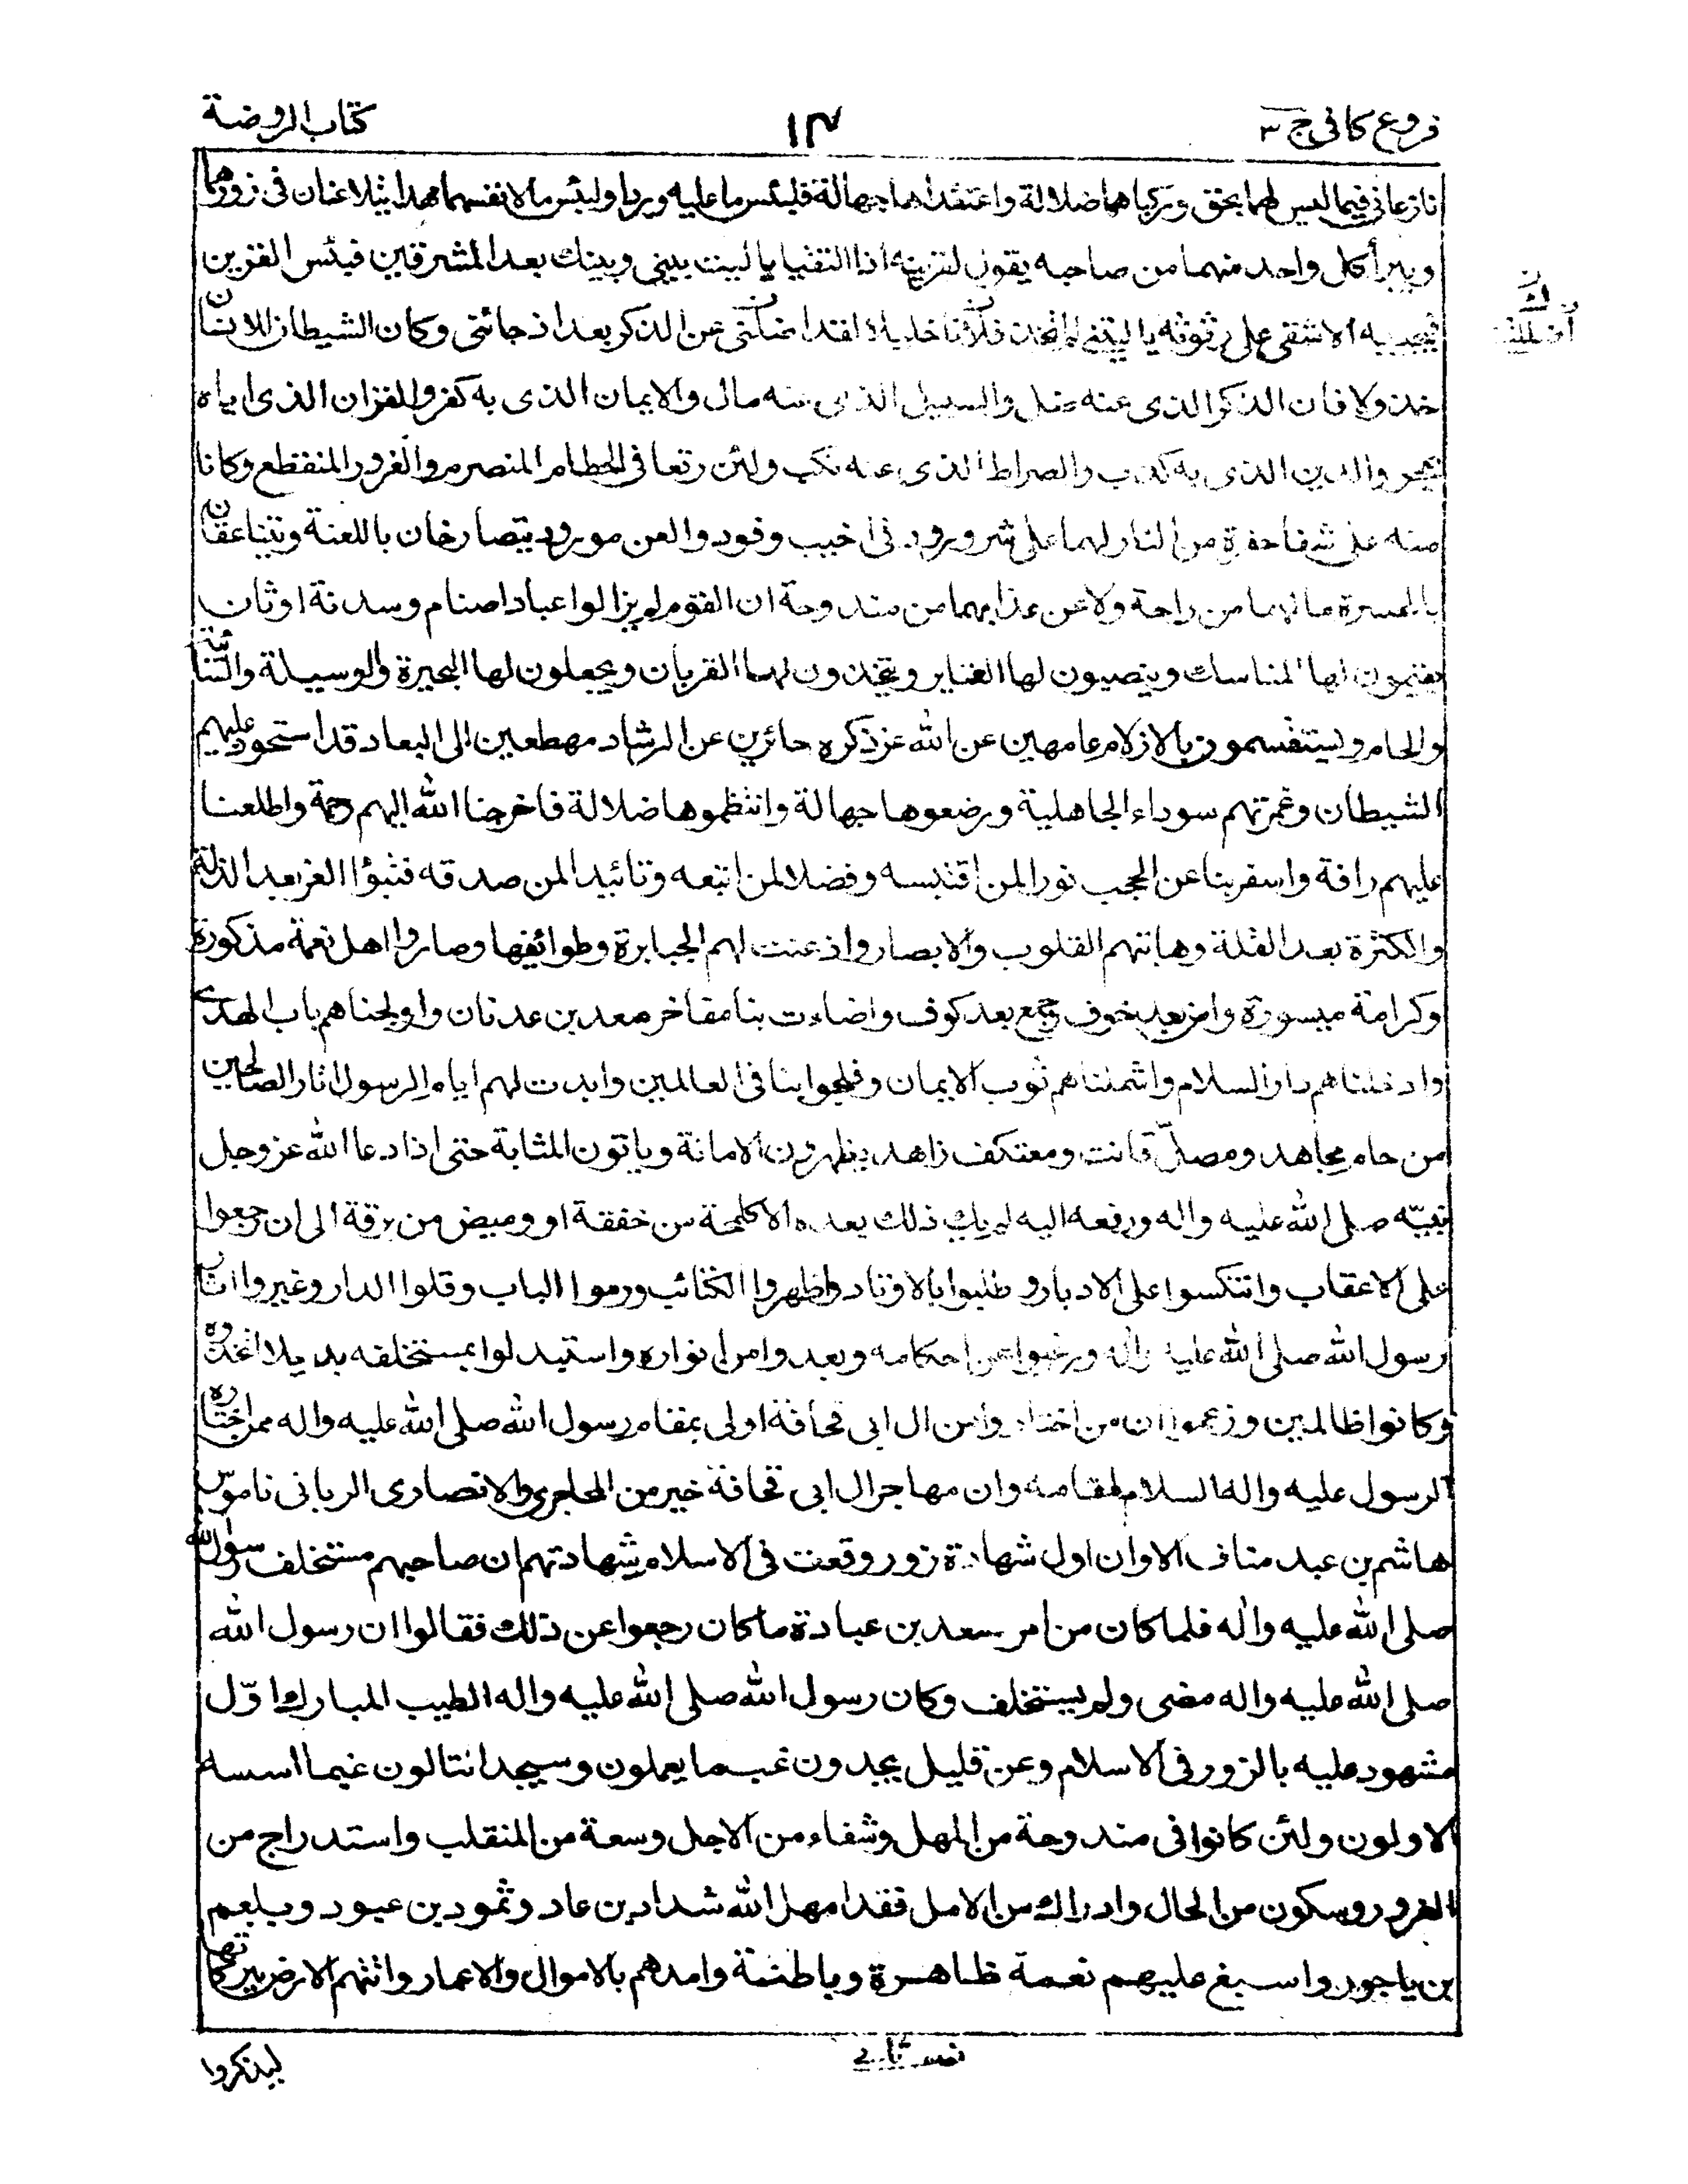 فروع كافى ج ٣
١٣
كتاب الروضة
نازعانى فيما ليس لهما بحق وركباها ضلالة واعتقداها جهالة فلبئس ما عليه وردا ولبئس ما لانفسهما مهدا يتلاعنان فى دورهما
ويبرأ كل واحد منهما من صاحبه يقول لقرينه اذا التقيا يا ليت بينى وبينك بعد المشرقين فبئس القرين
فيجيبه الاشقى على رثوثة يا ليتنى لم اتخذك خليلا لقد اضللتنى عن الذكر بعد اذ جائنى وكان الشيطان للانسان
خذولا فانا الذكر الذى عنه ضل والسبيل الذى عنه مال والايمان الذى به كفر والقران الذى اياه
هجر والدين الذى به كذب والصراط الذى عنه نكب ولئن رتعا فى الحطام المنصرم والغرور المنقطع وكانا
منه على شفا حفرة من النار لهما على شر ورود فى اخيب وفود والعن مورود يتصارخان باللعنة ويتناعقان
بالحسرة ما لهما من راحة ولا عن عذابهما من مندوحة ان القوم لم يزالوا عباد اصنام وسدنة اوثان
يقيمون لها المناسك وينصبون لها العتاير ويتخذون لها القربان ويجعلون لها البحيرة والوسيلة والسائبة
والحام ويستقسمون بالازلام عامهين عن الله عز ذكره حائرين عن الرشاد مهطعين الى البعاد قد استحوذ عليهم
الشيطان وغمرتهم سوداء الجاهلية ورضعوها جهالة وانتظموها ضلالة فاخرجنا الله اليهم رحمة واطلعنا
عليهم رافة واسفر بنا عن الحجب نورا لمن اقتبسه وفضلا لمن اتبعه وتائيدا لمن صدقه فتبوؤا العز بعد الذلة
والكثرة بعد القلة وهابتهم القلوب والابصار واذعنت لهم الجبابرة وطوائفها وصاروا اهل نعمة مذكورة
وكرامة ميسورة وامن بعد خوف وجمع بعد كوف واضاءت بنا مفاخر معد بن عدنان واولجناهم باب الهدى
وادخلناهم دار السلام واشملناهم ثوب الايمان وفلجوا بنا فى العالمين وابدت لهم ايام الرسول اثار الصالحين
من حام مجاهد ومصلّ قانت ومعتكف زاهد يظهرون الامانة وياتون المثابة حتى اذا دعا الله عز وجل
نبيّه صلى الله عليه واله ورفعه اليه لم يك ذلك بعده الا كلمحة من خفقة او وميض من برقة الى ان رجعوا
على الاعقاب وانتكسوا على الادبار وطلبوا بالاوتار واظهروا الكتائب ورموا الباب وفلوا الدار وغيروا اثار
رسول الله صلى الله عليه واله ورغبوا عن احكامه وبعدوا من انواره واستبدلوا بمستخلفه بديلا اتخذوه
وكانوا ظالمين وزعموا ان من اختاروا من ال ابى قحافة اولى بمقام رسول الله صلى الله عليه واله ممن اختاره
الرسول عليه واله السلام لمقامه وان مهاجر ال ابى قحافة خير من المهاجرى والانصارى الربانى ناموس
هاشم بن عبد مناف الا وان اول شهادة زور وقعت فى الاسلام شهادتهم ان صاحبهم مستخلف رسول الله
صلى الله عليه واله فلما كان من امر سعد بن عبادة ما كان رجعوا عن ذلك فقالوا ان رسول الله
صلى الله عليه واله مضى ولم يستخلف وكان رسول الله صلى الله عليه واله الطيب المبارك اوّل
مشهود عليه بالزور فى الاسلام وعن قليل يجدون غب ما يعملون وسيجد التالون غب ما اسسه
الاولون ولئن كانوا فى مندوحة من المهل وشفاء من الاجل وسعة من المنقلب واستدراج من
الغرور وسكون من الحال وادراك من الامل فقد امهل الله شداد بن عاد وثمود بن عبود وبلعم
بن باحور واسبغ عليهم نعمة ظاهرة وباطنة وامدهم بالاموال والاعمار واتتهم الارض ببركاتها
ليذكروا